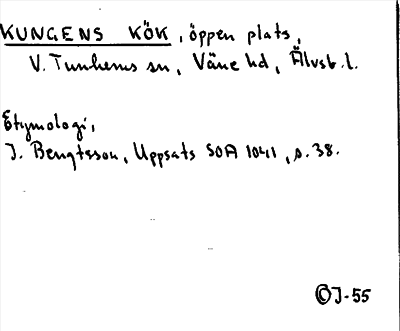 KUNGENS KÖK, öppen plats,
V. Tunhems sn, Väne hd, Älvsb. l.
Etymologi,
J. Bengtsson, Uppsats SOA 1041, s. 38.
©J-55